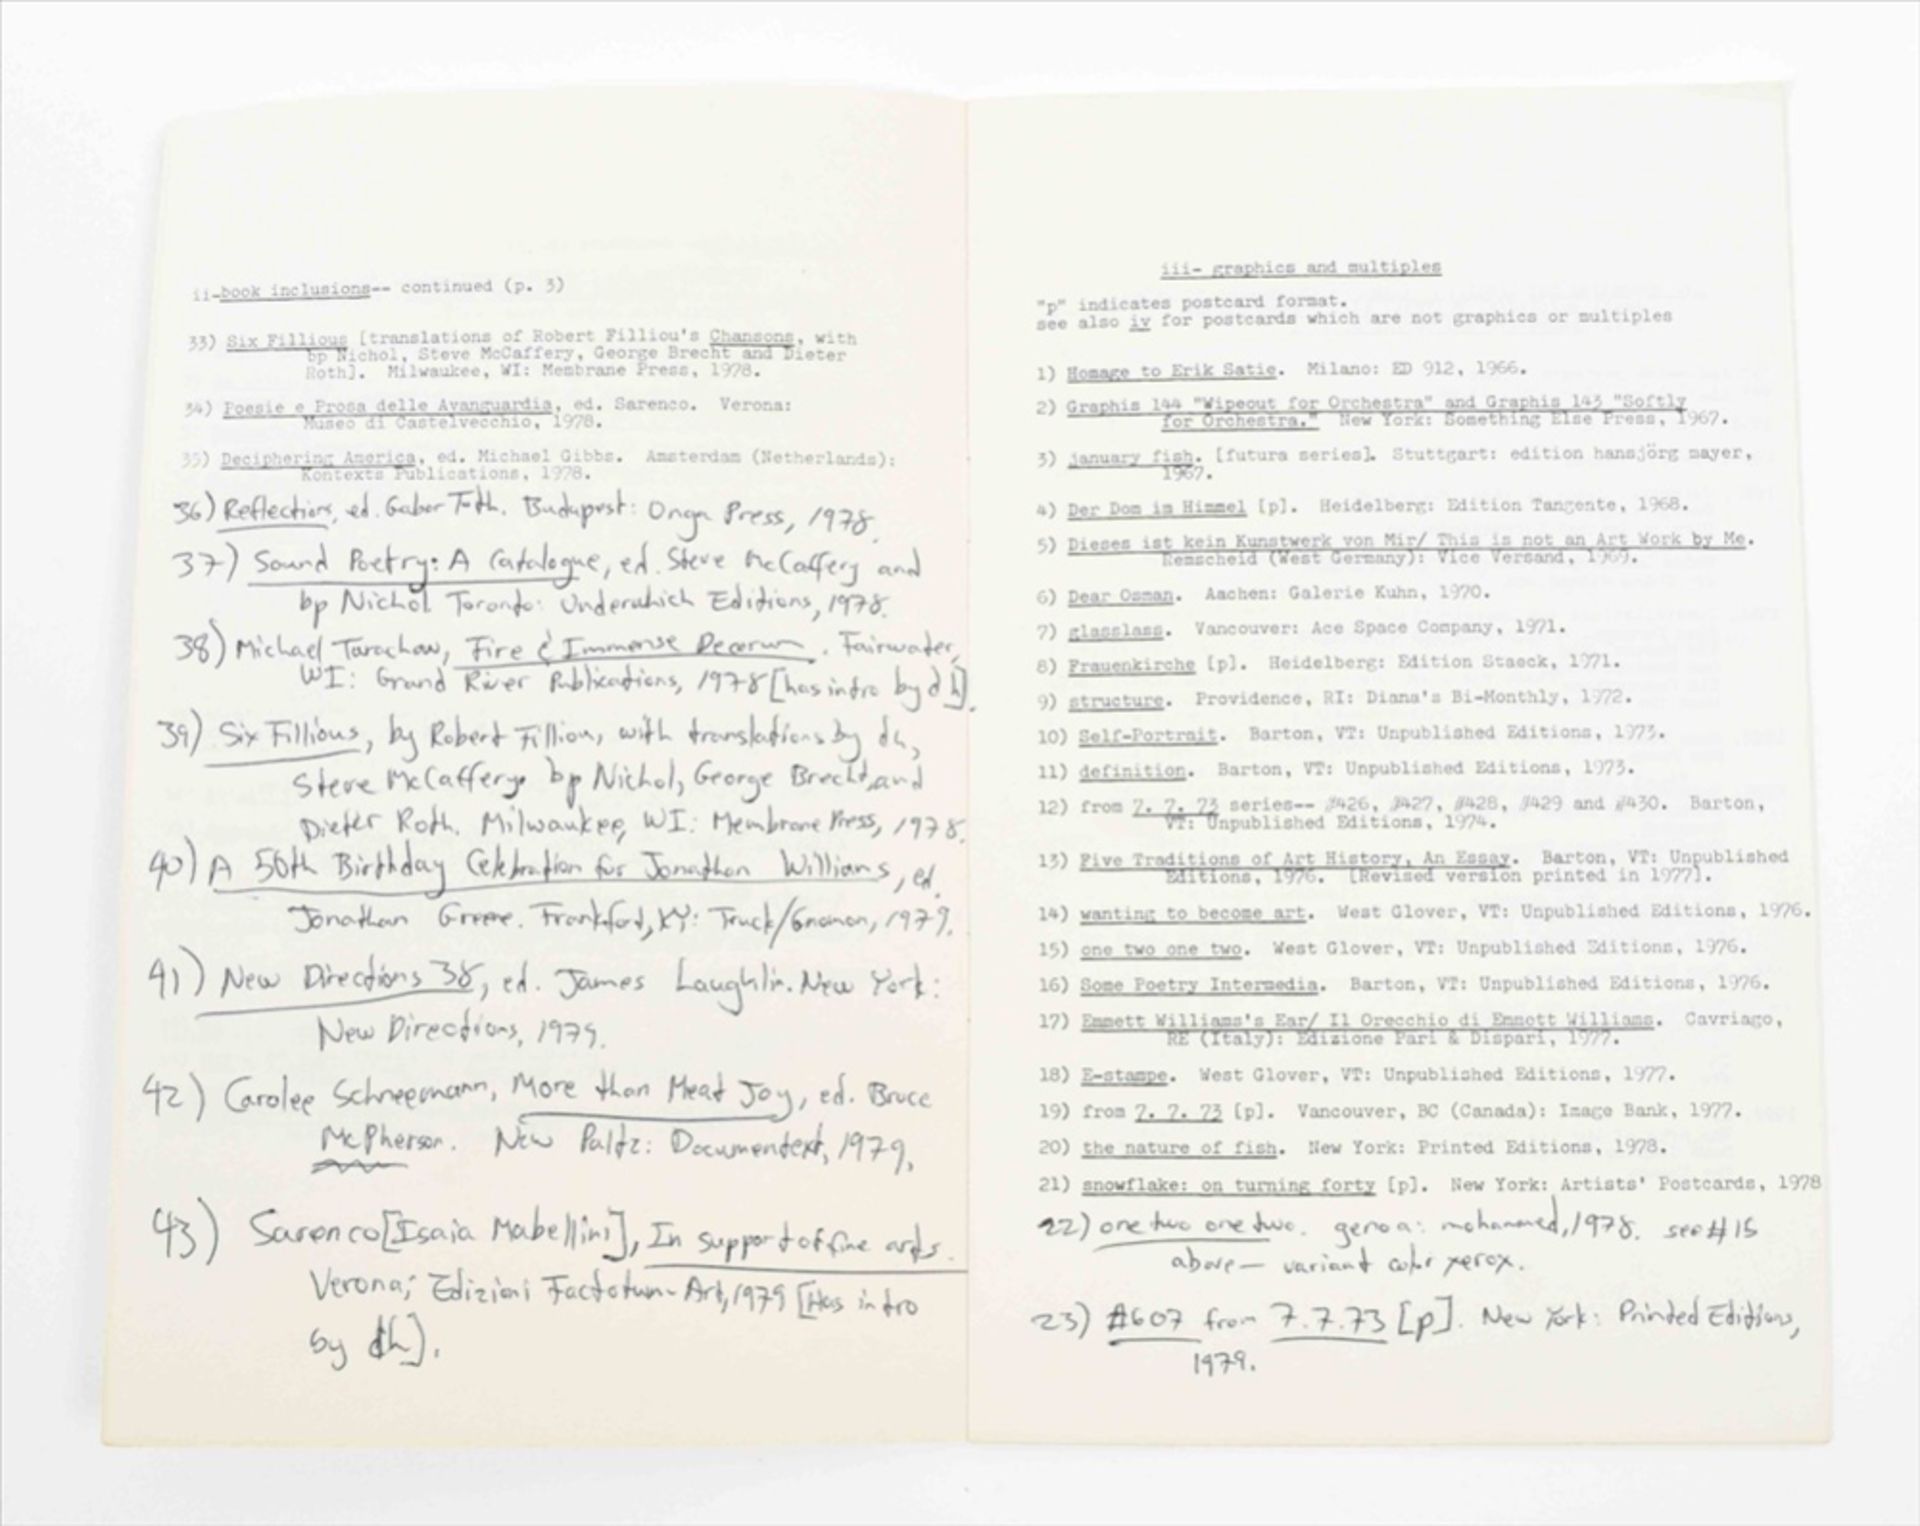 ii-book inclusions-- continued (p. 3)
33) Six Fillious [translations of Robert Filliou's Chansons, with
bp Nichol, Steve McCaffery, George Brecht and Dieter
Roth]. Milwaukee, WI: Membrane Press, 1978.
34) Poesie e Prosa delle Avanguardia, ed. Sarenco. Verona:
Museo di Castelvecchio, 1978.
35) Deciphering America, ed. Michael Gibbs. Amsterdam (Netherlands):
Kontexts Publications, 1978.
36) Reflections, ed. Gabor Toth. Budapest: Onga Press, 1978.
37) Sound Poetry: A Catalogue, ed. Steve McCaffery and
bp Nichol Toronto: Underwhich Editions, 1978.
38) Michael Tarachow, Fire & Immense Decorum. Fairwater,
WI: Grand River Publications, 1978 [has intro by dh].
39) Six Fillious, by Robert Filliou, with translations by dh,
Steve McCaffery, bp Nichol, George Brecht, and
Dieter Roth. Milwaukee, WI: Membrane Press, 1978.
40) A 50th Birthday Celebration for Jonathan Williams, ed.
Jonathan Greene. Frankford, KY: Truck/Gnomon, 1979.
41) New Directions 38, ed. James Laughlin. New York:
New Directions, 1979.
42) Carolee Schneemann, More than Meat Joy, ed. Bruce
McPherson. New Paltz: Documentext, 1979.
43) Sarenco [Isaia Mabellini], In support of fine arts.
Verona; Edizioni Factotum-Art, 1979 [Has intro
by dh].
iii- graphics and multiples
"p" indicates postcard format.
see also iv for postcards which are not graphics or multiples
1) Homage to Erik Satie. Milano: ED 912, 1966.
2) Graphis 144 "Wipeout for Orchestra" and Graphis 143 "Softly
for Orchestra." New York: Something Else Press, 1967.
3) january fish. [futura series]. Stuttgart: edition hansjörg mayer,
1967.
4) Der Dom im Himmel [p]. Heidelberg: Edition Tangente, 1968.
5) Dieses ist kein Kunstwerk von Mir/ This is not an Art Work by Me.
Remscheid (West Germany): Vice Versand, 1969.
6) Dear Osman. Aachen: Galerie Kuhn, 1970.
7) glasslass. Vancouver: Ace Space Company, 1971.
8) Frauenkirche [p]. Heidelberg: Edition Staeck, 1971.
9) structure. Providence, RI: Diana's Bi-Monthly, 1972.
10) Self-Portrait. Barton, VT: Unpublished Editions, 1973.
11) definition. Barton, VT: Unpublished Editions, 1973.
12) from 7. 7. 73 series-- #426, #427, #428, #429 and #430. Barton,
VT: Unpublished Editions, 1974.
13) Five Traditions of Art History, An Essay. Barton, VT: Unpublished
Editions, 1976. [Revised version printed in 1977].
14) wanting to become art. West Glover, VT: Unpublished Editions, 1976.
15) one two one two. West Glover, VT: Unpublished Editions, 1976.
16) Some Poetry Intermedia. Barton, VT: Unpublished Editions, 1976.
17) Emmett Williams's Ear/ Il Orecchio di Emmett Williams. Cavriago,
RE (Italy): Edizione Pari & Dispari, 1977.
18) E-stampe. West Glover, VT: Unpublished Editions, 1977.
19) from 7. 7. 73 [p]. Vancouver, BC (Canada): Image Bank, 1977.
20) the nature of fish. New York: Printed Editions, 1978.
21) snowflake: on turning forty [p]. New York: Artists' Postcards, 1978
22) one two one two. genoa: mohammed, 1978. see #15
above— variant color xerox.
23) #607 from 7.7.73 [p]. New York: Printed Editions,
1979.